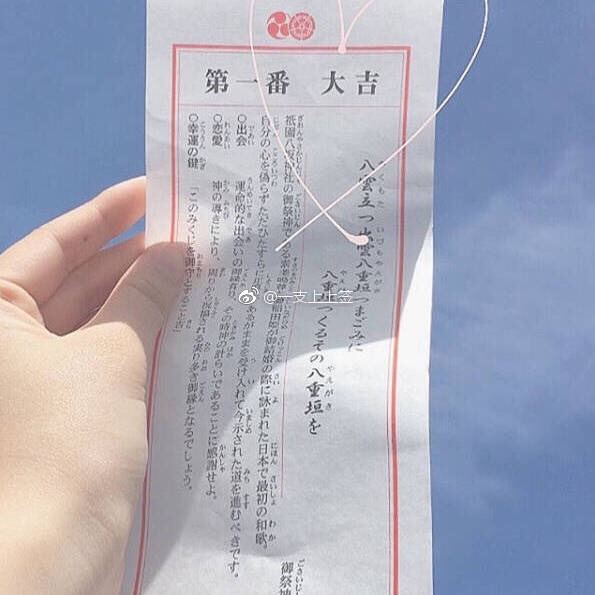 第一番 大吉
八雲立つ出雲八重垣つまごみに
八重垣つくるその八重垣を
御祭神
祇園八坂神社の御祭神で 稲田姫が御結婚の際に詠まれた日本で最初の和歌。
自分の心を偽らずただひたすらに あるがままを受け入れて今示された道を進むべきです。
○出会 運命的な出会いの御縁有り、その時神の計らいであることに感謝せよ。
○恋愛 神の導きにより、周りから祝福される実り多き御縁となるでしょう。
○幸運の鍵 「このみくじを御守とすること吉」
@一支上上签